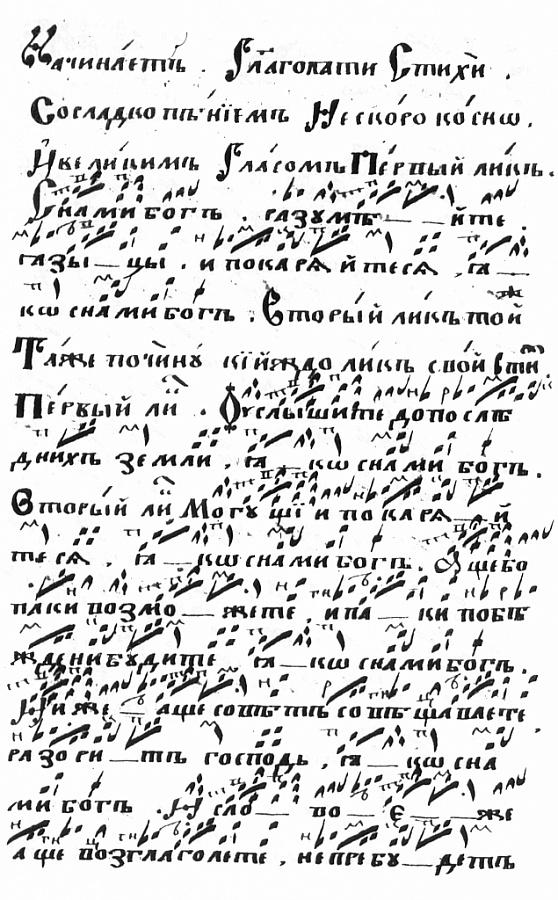 Начинаетъ . Глаголати Стихи .
Сосладкопѣнїемъ Нескоро косно .
Ивеликимъ Гласомъ Первый ликъ .
Снами богъ . разумѣ__йте .
ꙗзы__цы . и покарѧйтесѧ , ꙗ__
кѡ снами богъ . Вторый ликъ той
Тѧже почину кїйждо ликъ свой сти
Первый ли . Оуслышите до послѣ
днихъ земли , ꙗ__кѡ снами богъ .
Вторый ли Могущїи покарѧ__й
тесѧ , ꙗ__кѡ снами богъ . Аще бо
паки возмо__жете , и па__ки побѣ
ждени будите ꙗ__кѡ снами богъ .
И иже __аще совѣтъ совѣщаваете ,
разори__тъ господь , ꙗ__кѡ сна
ми богъ . И сло__во__є__же
аще возглаголете , не пребу__детъ